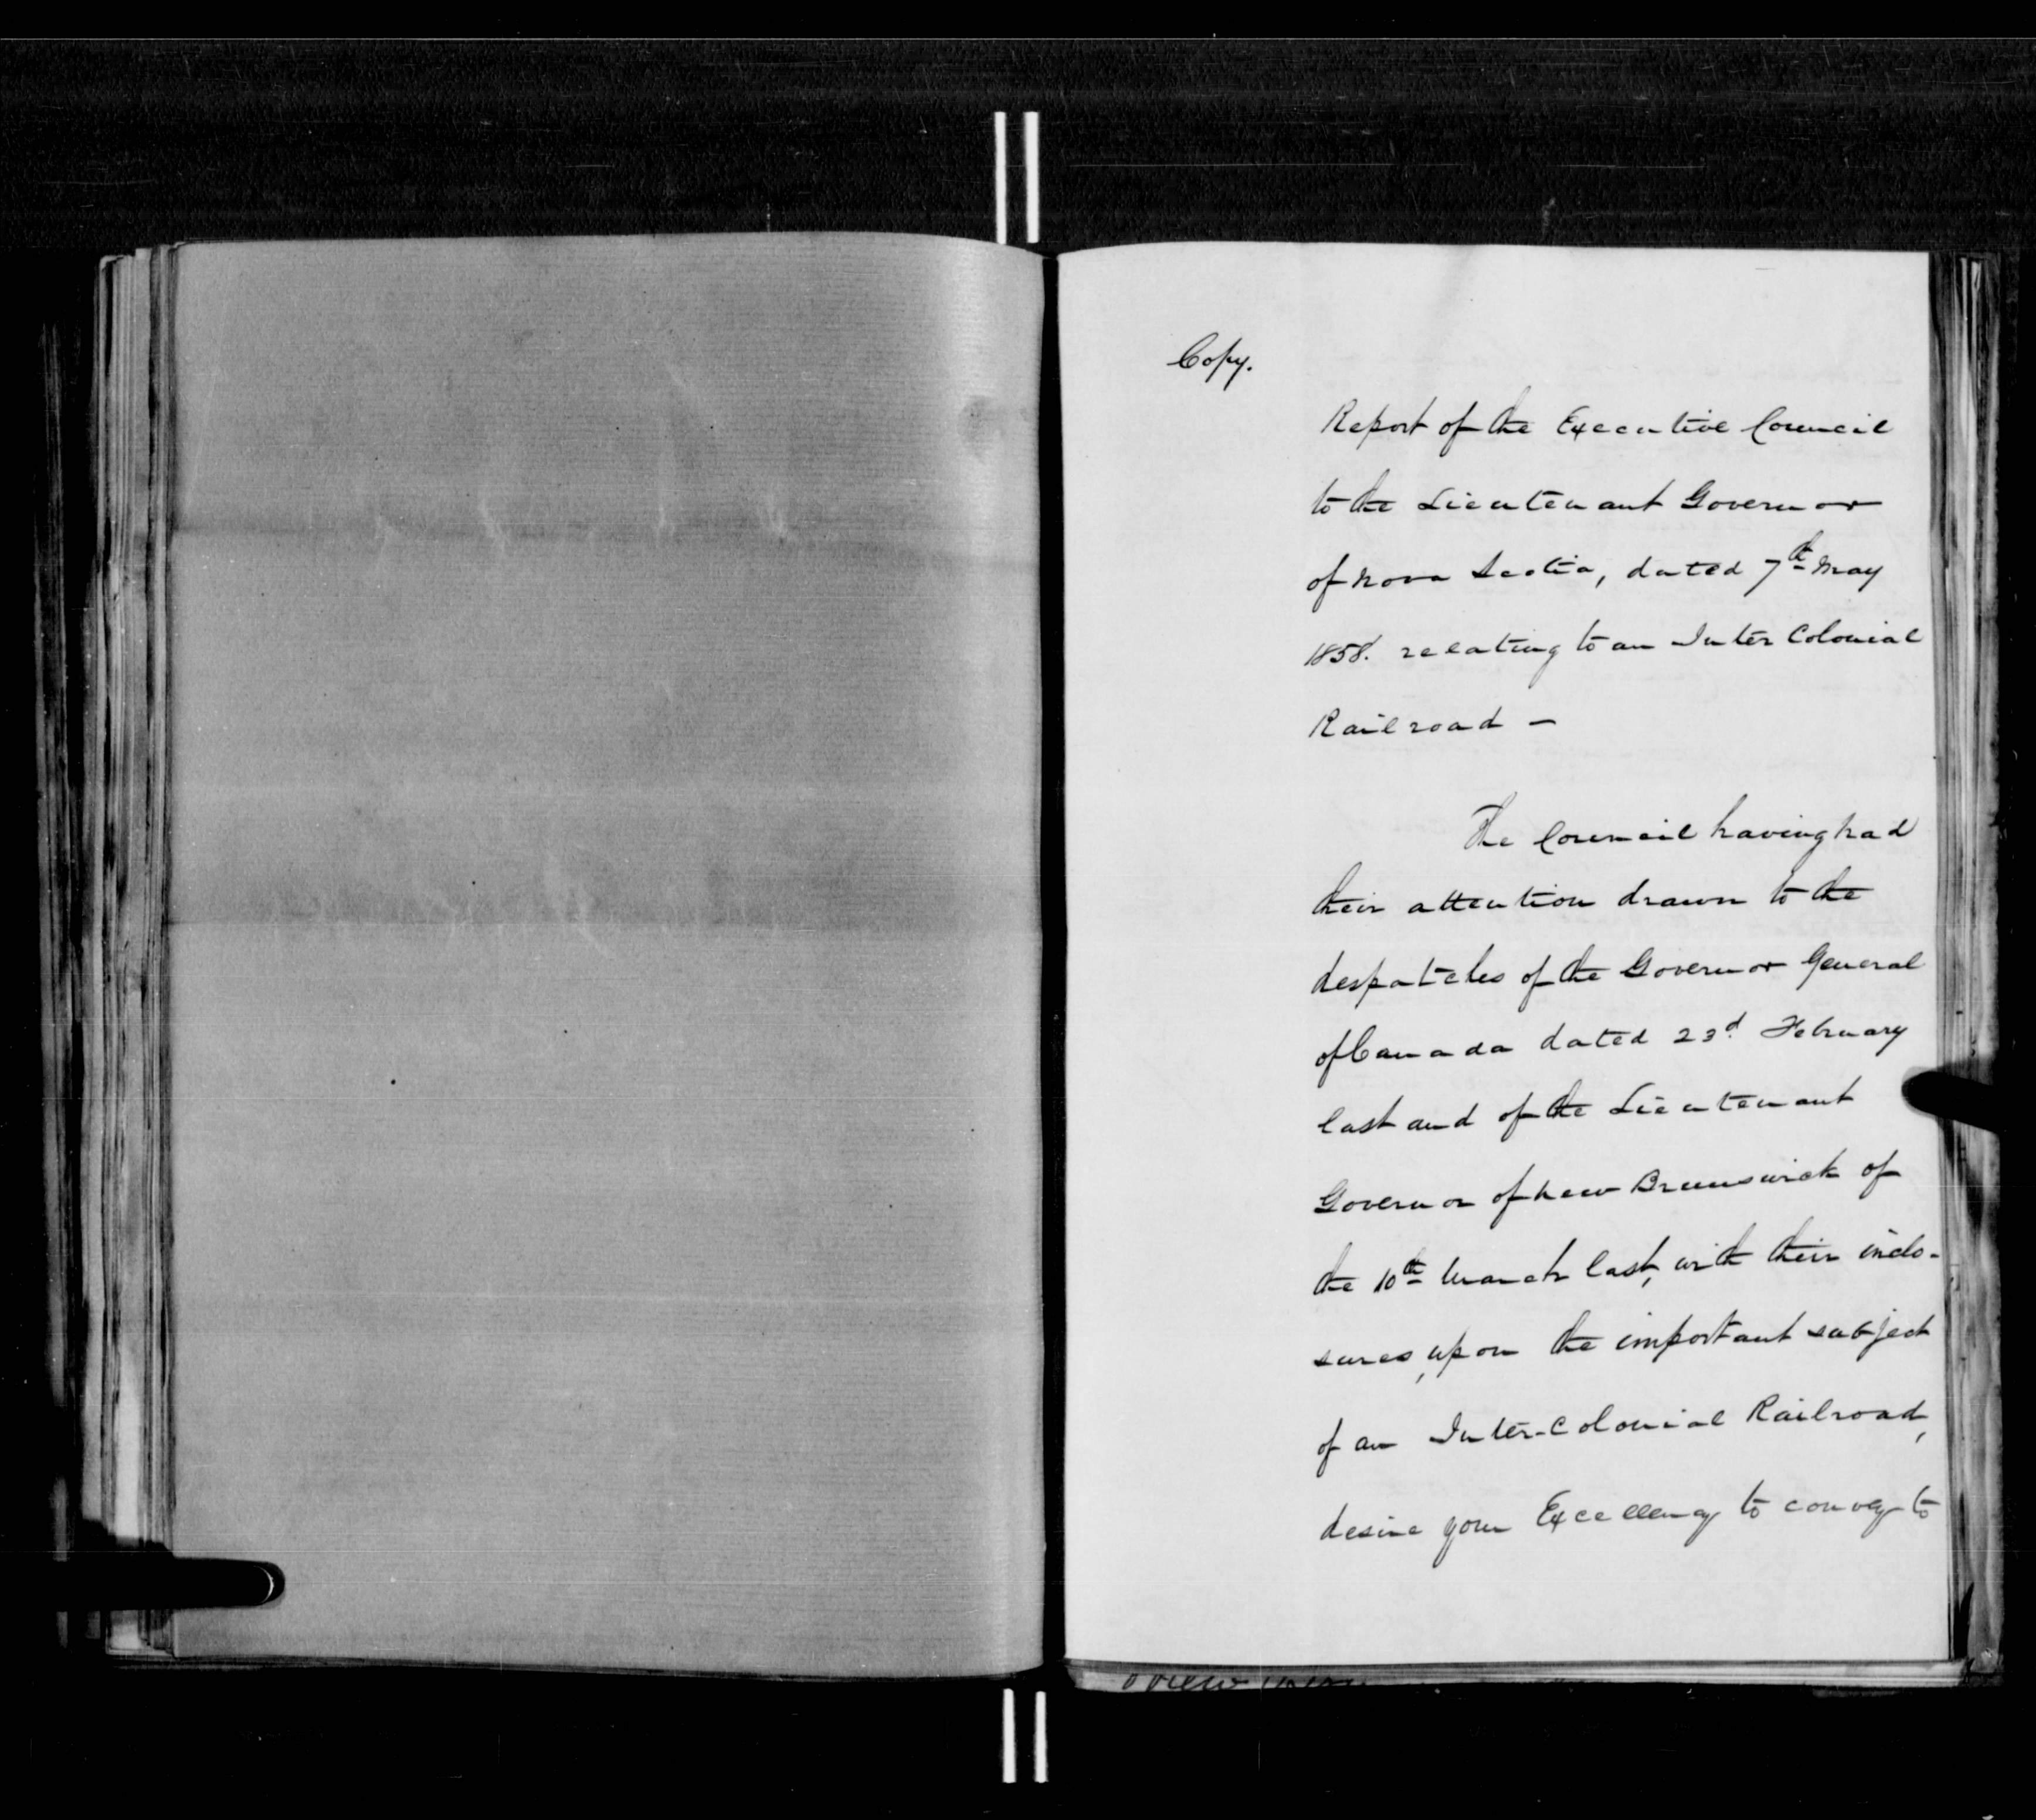 Copy.
Report of the Executive Council
to the Lieutenant Governor
of Nova Scotia, dated 7th May
1858. relating to an Inter Colonial
Railroad —
The Council having had
their attention drawn to the
despatches of the Governor General
of Canada dated 23d. February
last and of the Lieutenant
Governor of New Brunswick of
the 10th March last, with their inclo-
sures, upon the important subject
of an Inter-Colonial Railroad,
desire your Excellency to convey to